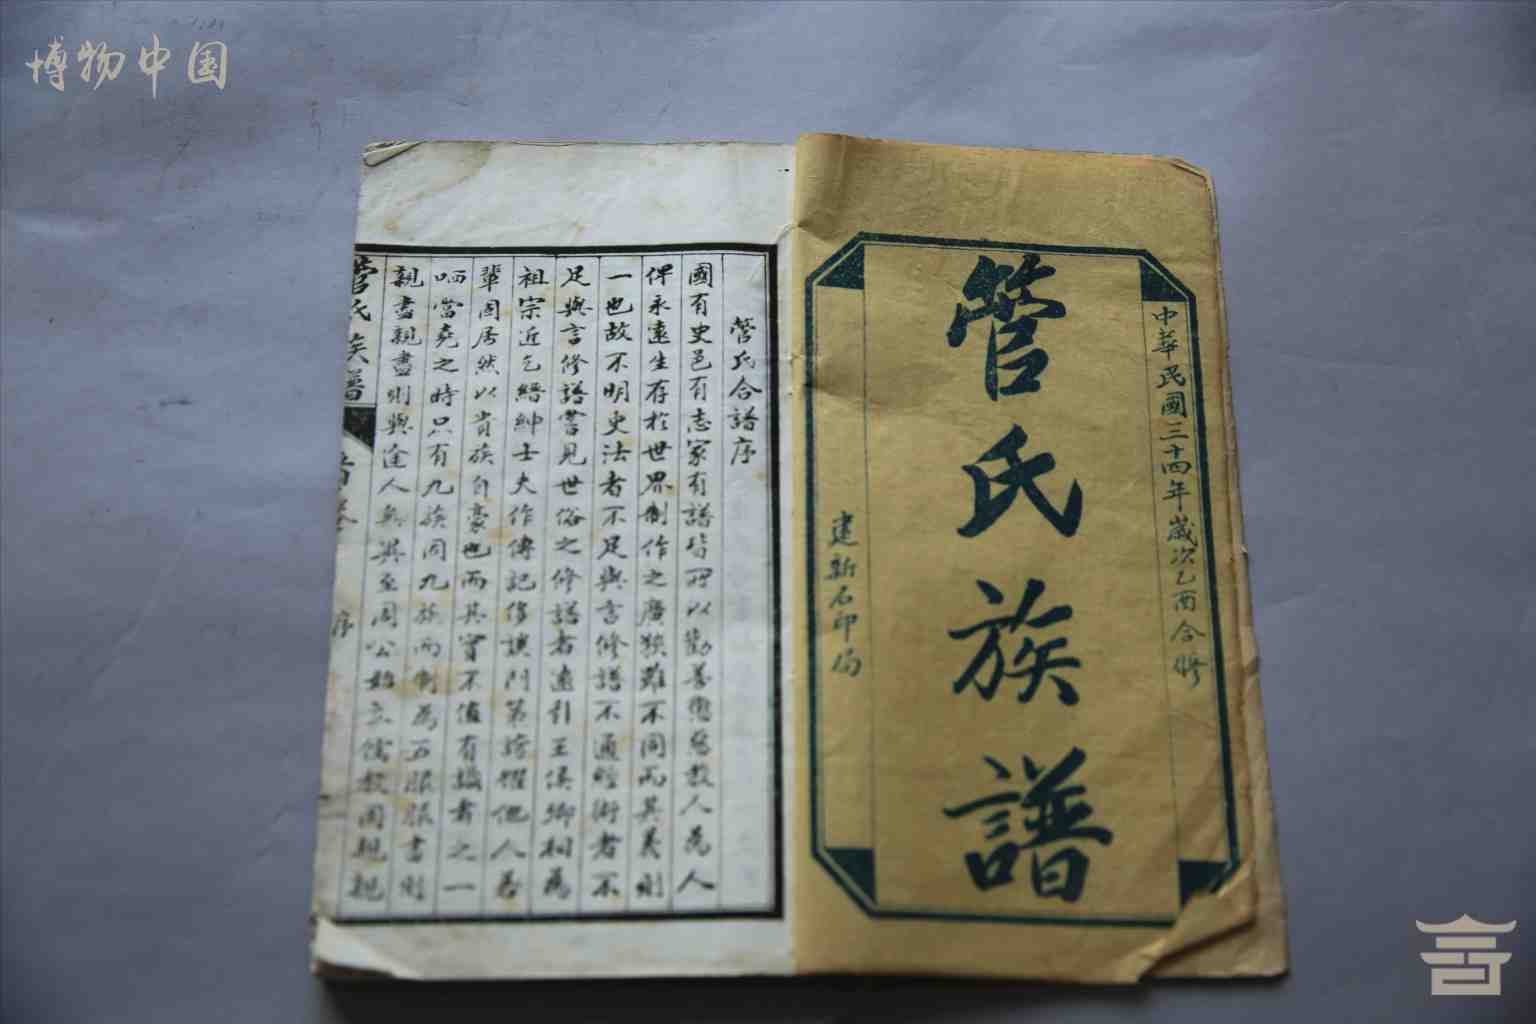 博物中国
中華民國三十四年歲次乙酉合修
管氏族譜
建新石印局
管氏合譜序
國有史邑有志家有譜皆所以勸善懲惡教人為人
俾永遠生存於世界制作之廣狹雖不同而其義則
一也故不明史法者不足與言修譜不通經術者不
足與言修譜嘗見世俗之修譜者遠引王侯卿相為
祖宗近乞縉紳士夫作傳記侈談門第誇耀他人若
輩固居然以貴族自豪也而其實不值有識者之一
哂當堯之時只有九族同九族而制為五服服書則
親書親盡則與途人無異至周公始立儒教因親親
管氏族譜
首卷
序